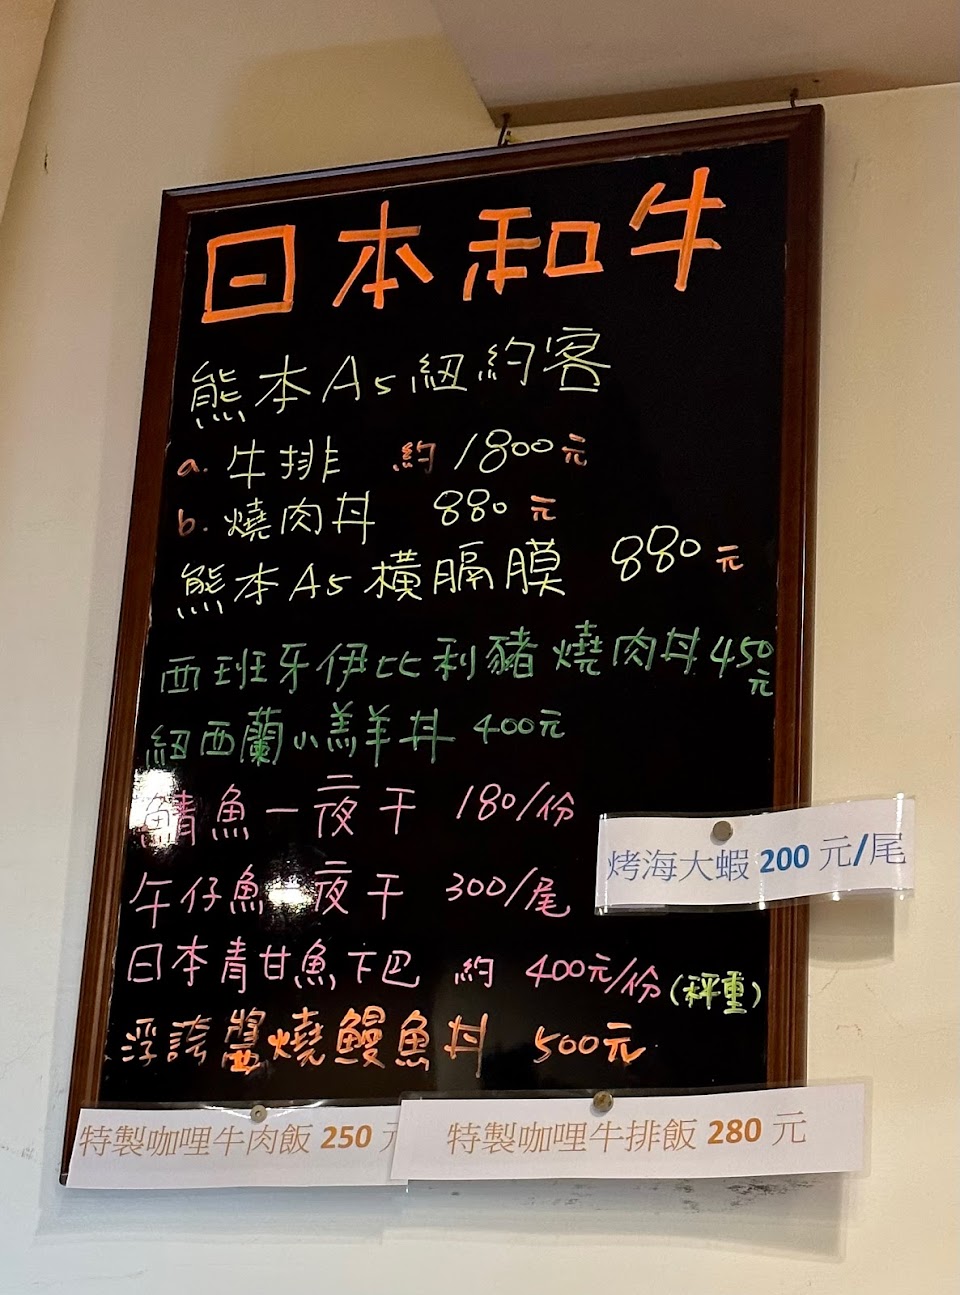 日本和牛
熊本A5紐約客
a. 牛排 約 1800元
b. 燒肉丼 880元
熊本A5橫膈膜 880元
西班牙伊比利豬燒肉丼 450元
紐西蘭小羔羊丼 400元
鯖魚一夜干 180/份
午仔魚一夜干 300/尾
烤海大蝦 200 元/尾
日本青甘魚下巴 約 400元/份 (秤重)
浮誇醬燒鰻魚丼 500元
特製咖哩牛肉飯 250 元
特製咖哩牛排飯 280 元